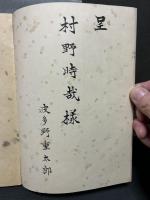 呈
村野時哉様
波多野重太郎